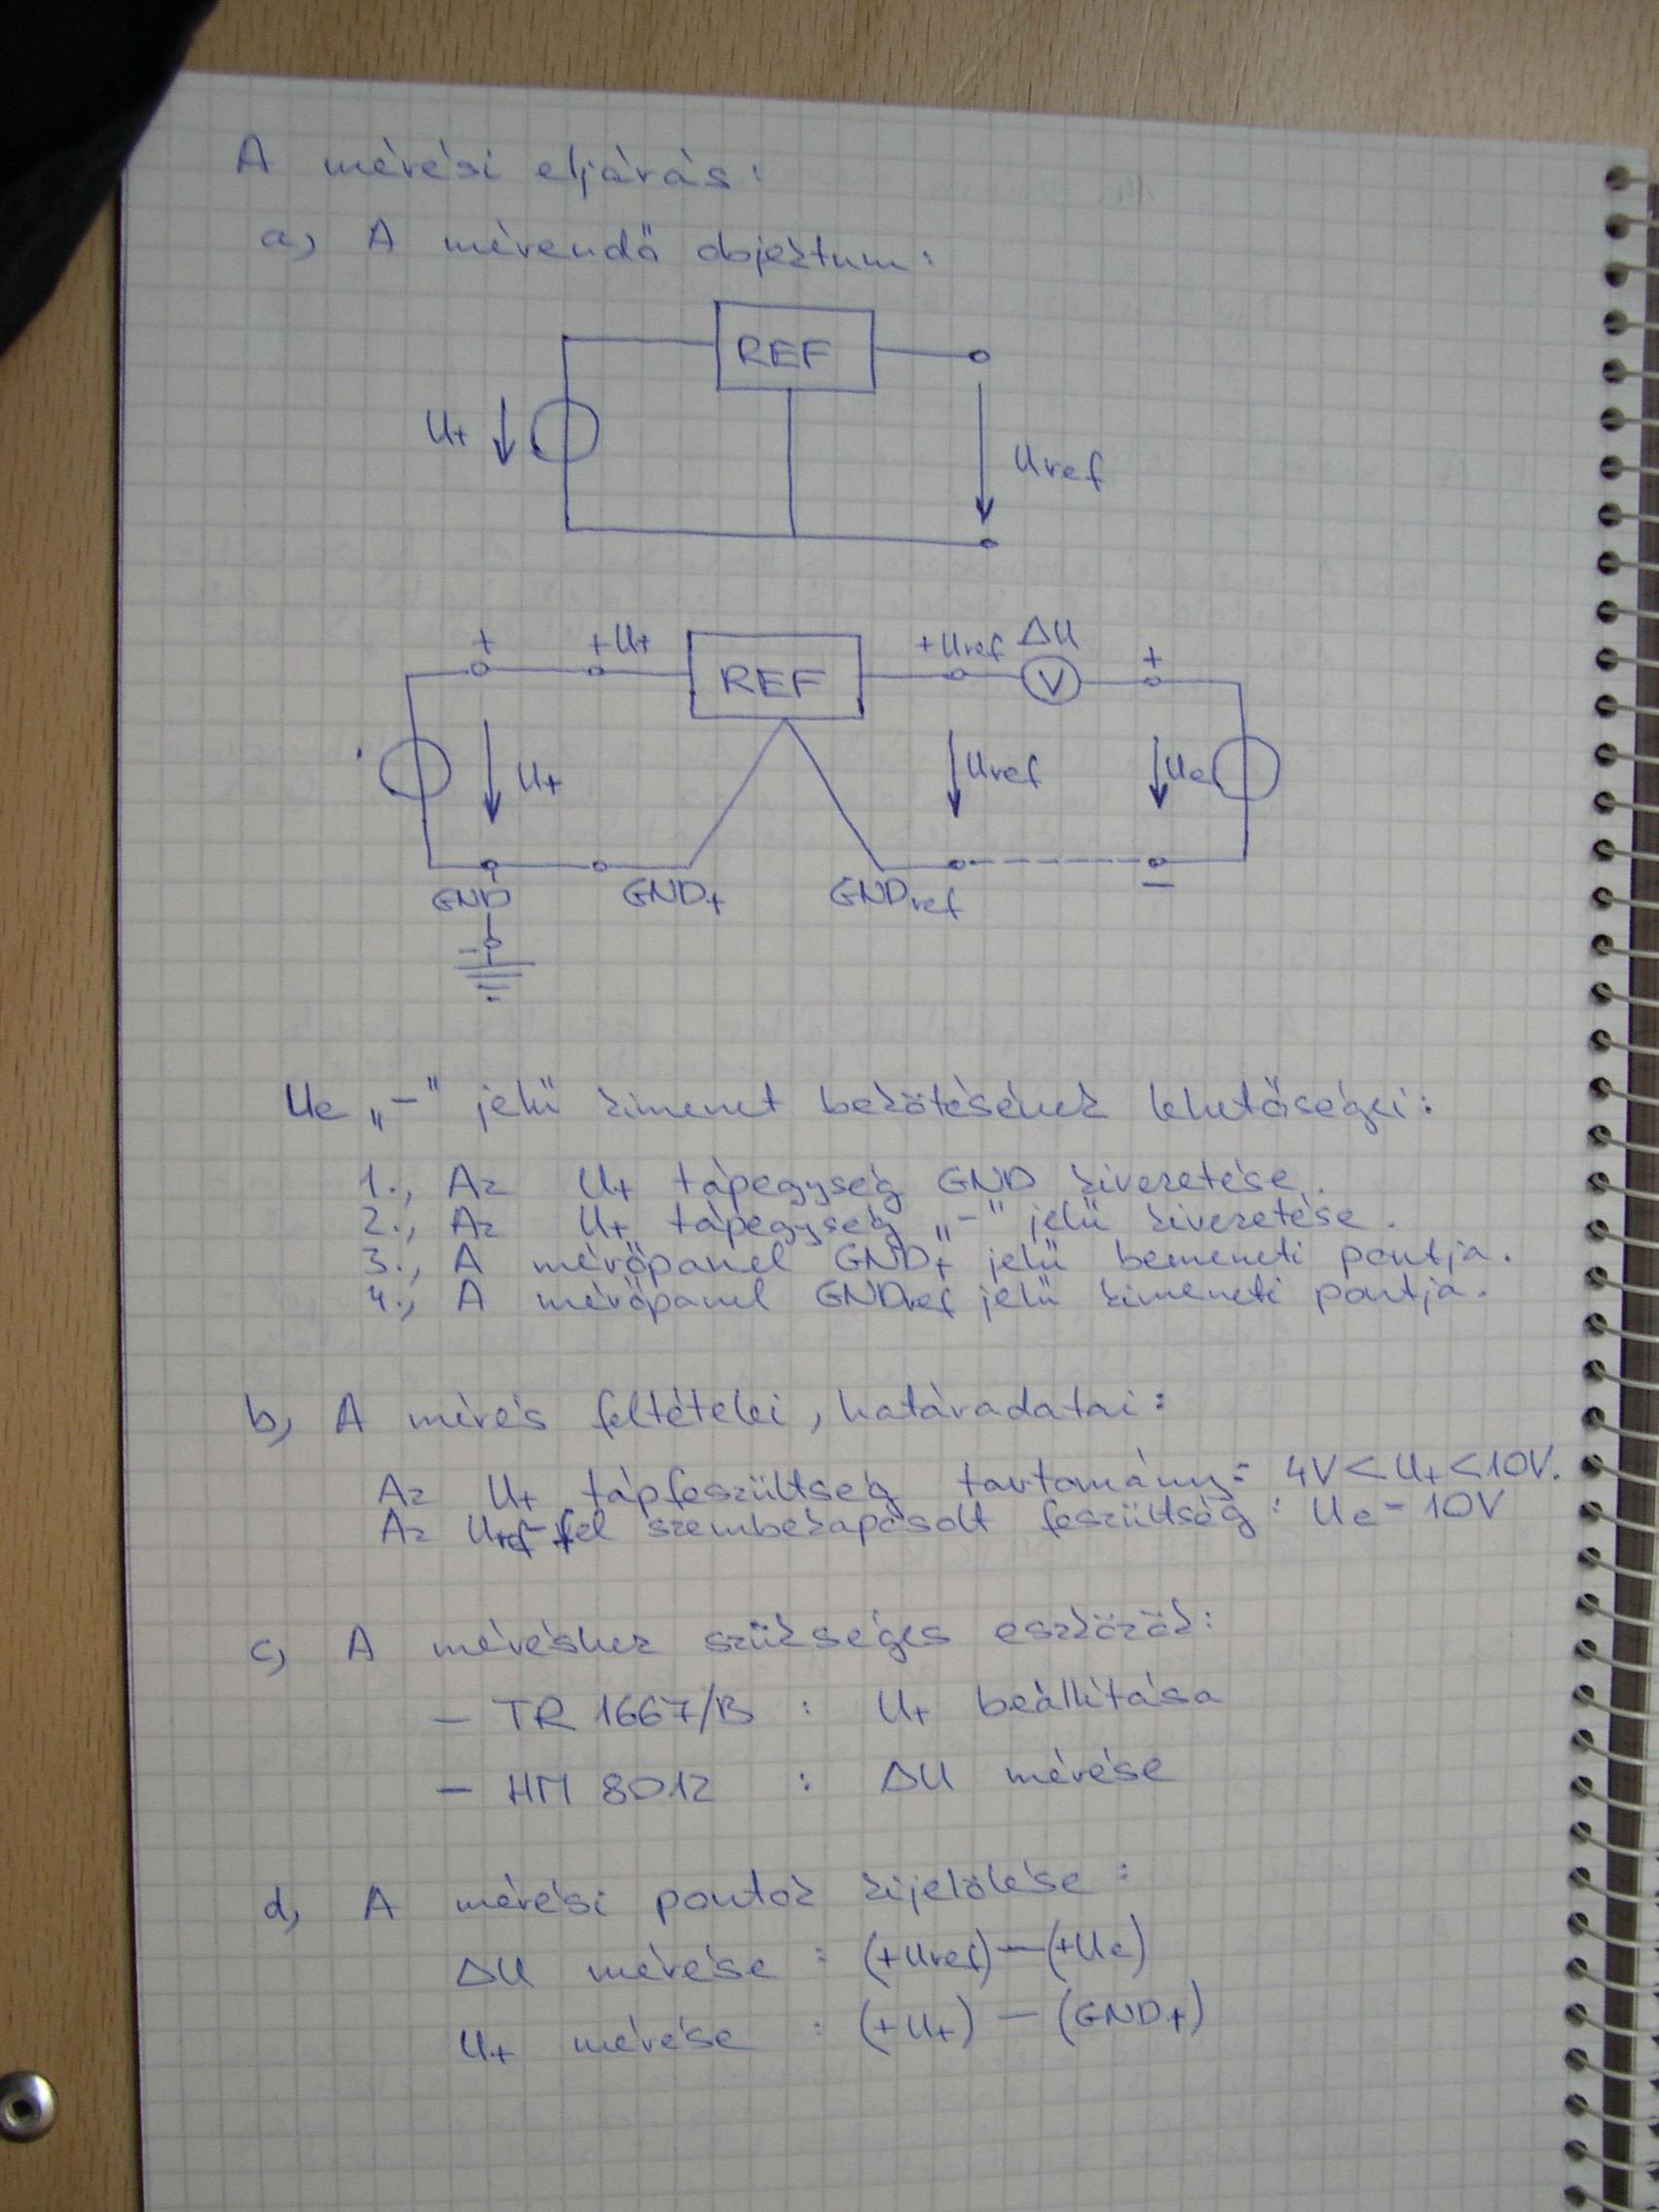 A mérési eljárás:
a, A mérendő objektum:
REF
U+
Uref
+ +U+ REF +Uref ΔU V +
U+ Uref Ue
GND GND+ GNDref −
−
Ue „−" jelű kimenet bekötésének lehetőségei:
1., Az U+ tápegység GND kivezetése.
2., Az U+ tápegység „−" jelű kivezetése.
3., A mérőpanel GND+ jelű bemeneti pontja.
4., A mérőpanel GNDref jelű kimeneti pontja.
b, A mérés feltételei, határadatai:
Az U+ tápfeszültség tartomány: 4V < U+ < 10V.
Az Uref-fel szembekapcsolt feszültség: Ue - 10V
c, A méréshez szükséges eszközök:
− TR 1667/B : U+ beállítása
− HM 8012 : ΔU mérése
d, A mérési pontok kijelölése:
ΔU mérése : (+Uref) − (+Ue)
U+ mérése : (+U+) − (GND+)